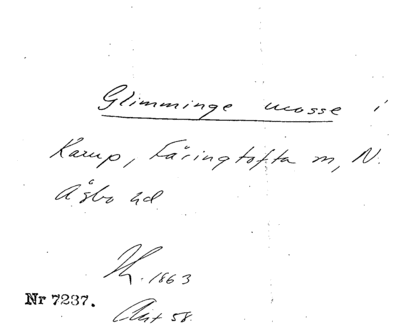 Glimminge mosse i
Karup, Färingtofta m, N.
Åsbo hd
K. 1863
Nr 7237.
Ant 58.